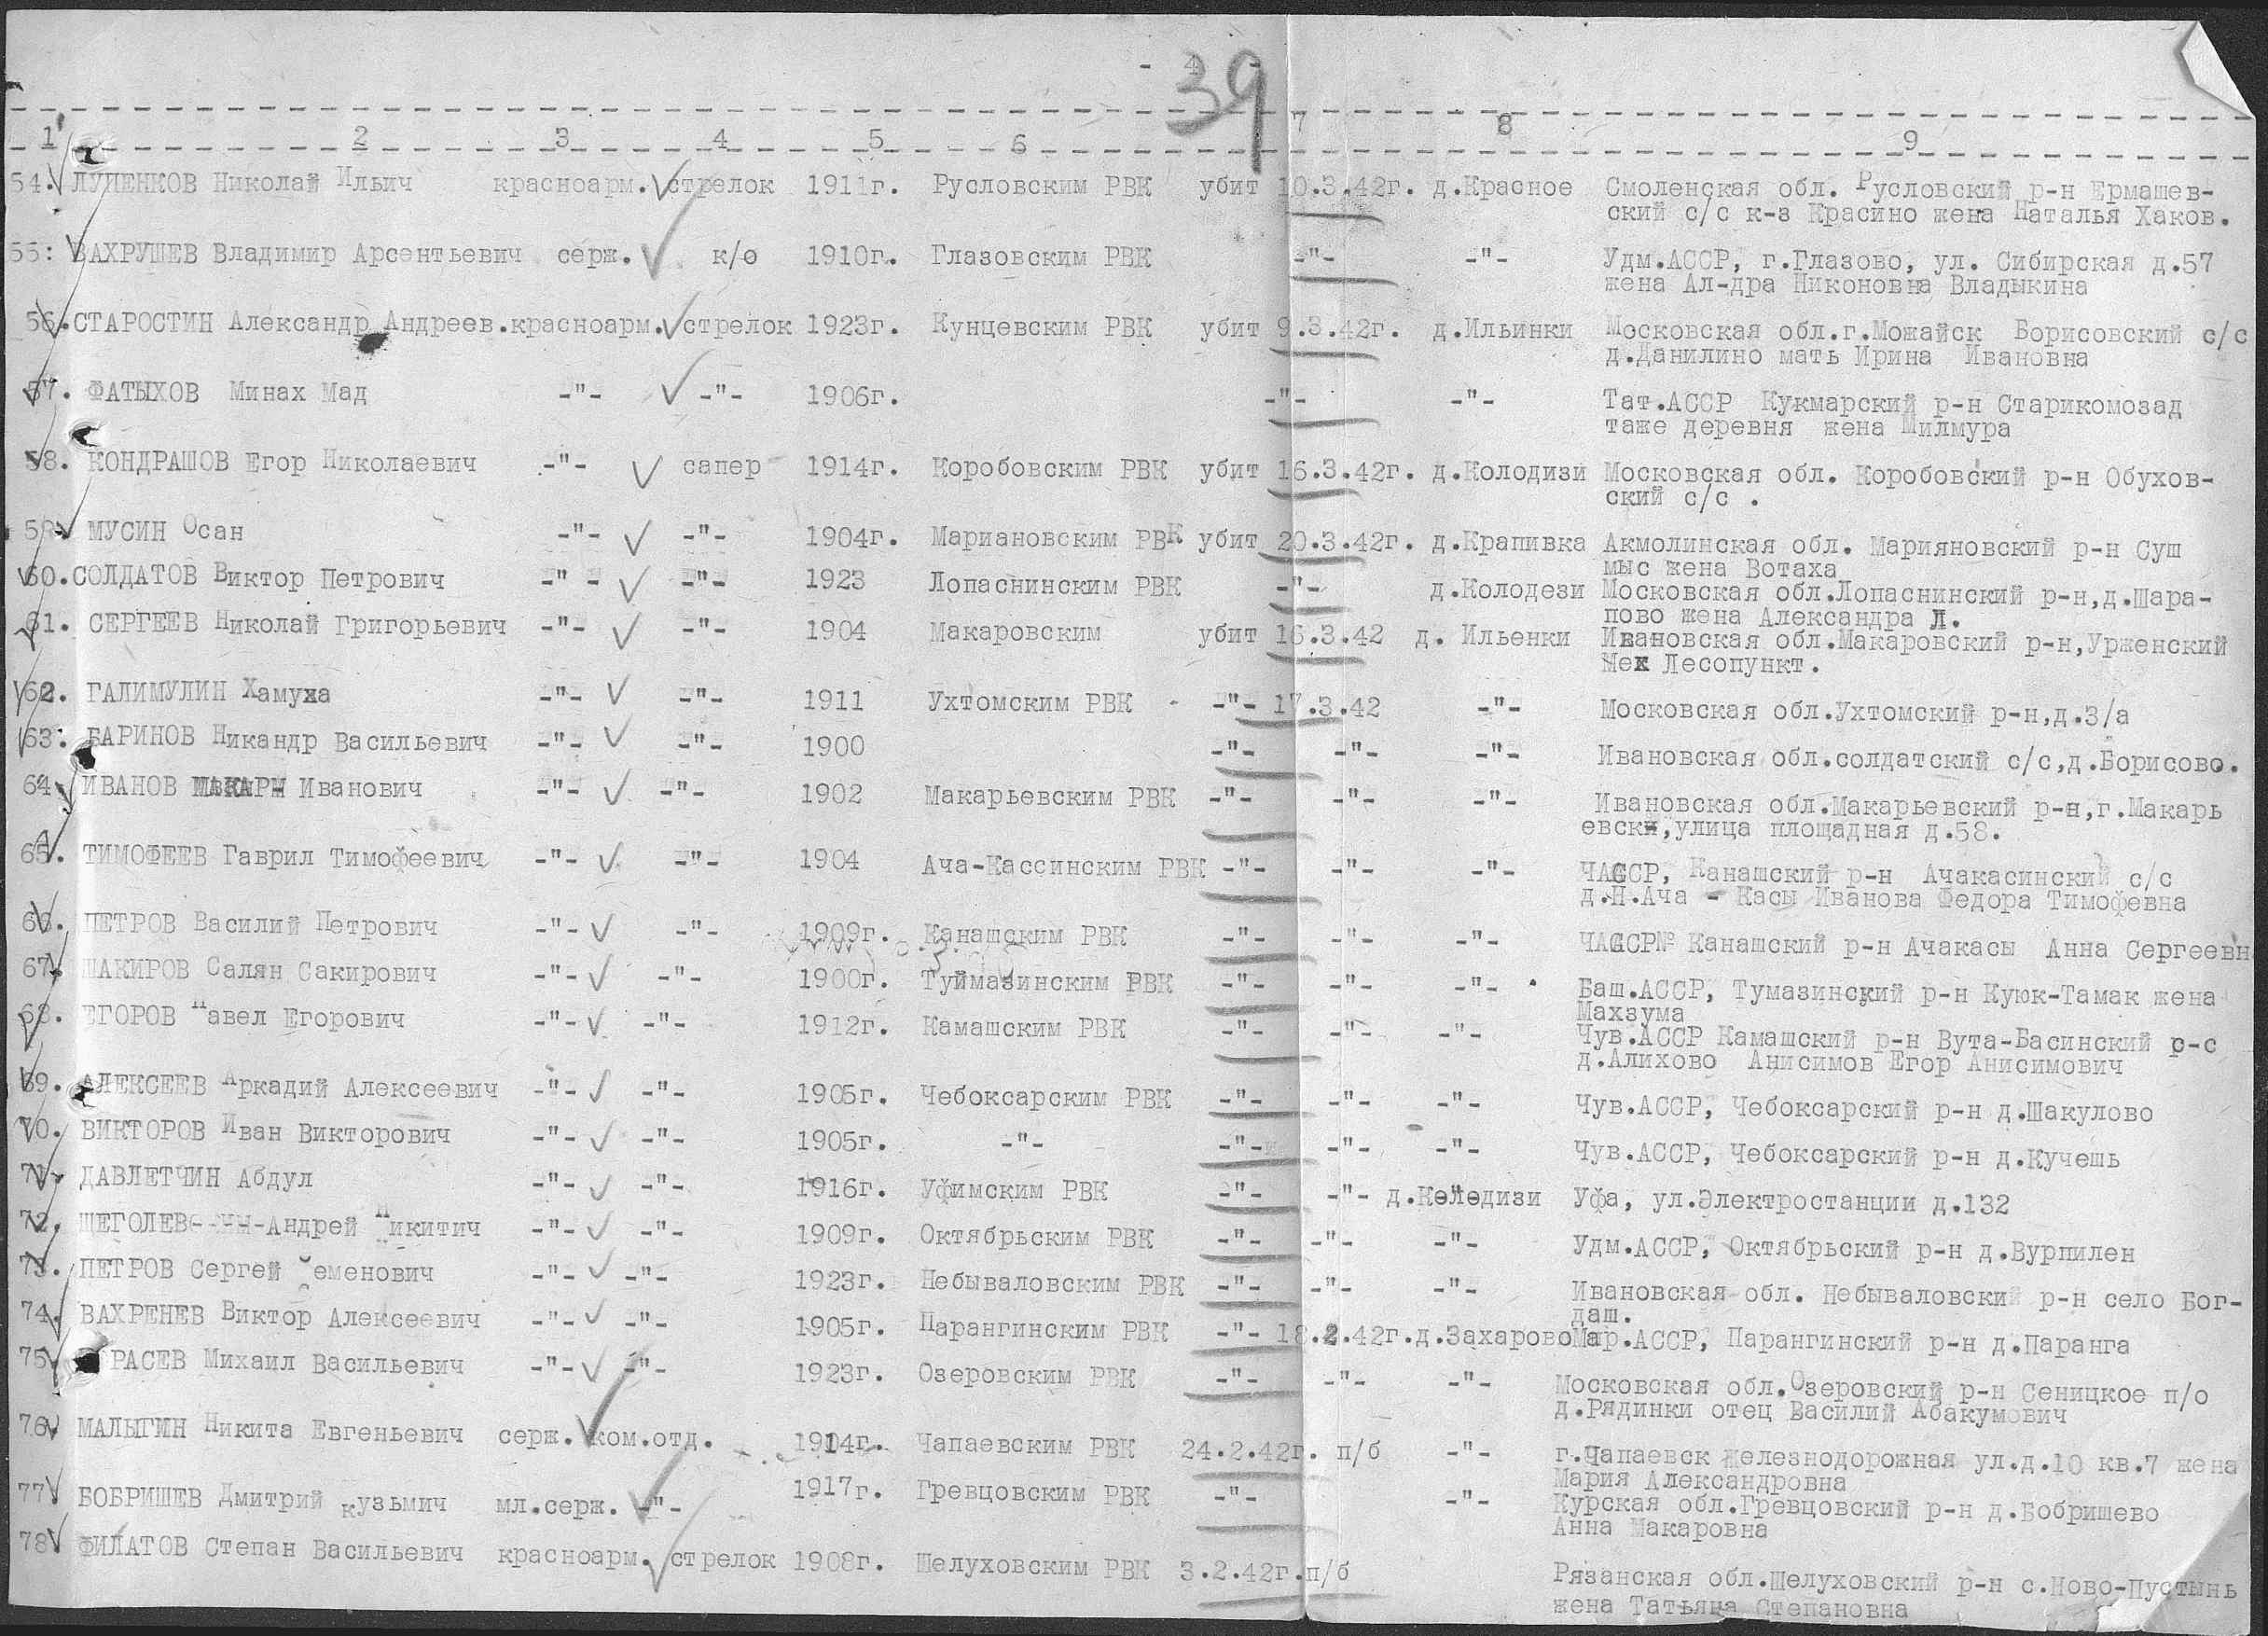 - 4 -
39
1 2 3 4 5 6 7 8 9
54. ЛУПЕНКОВ Николай Ильич красноарм. стрелок 1911г. Русловским РВК убит 10.3.42г. д.Красное Смоленская обл. Русловский р-н Ермашев-
ский с/с к-з Красино жена Наталья Хаков.
55: ВАХРУШЕВ Владимир Арсентьевич серж. к/о 1910г. Глазовским РВК -"- -"- Удм.АССР, г.Глазово, ул. Сибирская д.57
жена Ал-дра Никоновна Владыкина
56. СТАРОСТИН Александр Андреев. красноарм. стрелок 1923г. Кунцевским РВК убит 9.3.42г. д.Ильинки Московская обл.г.Можайск Борисовский с/с
д.Данилино мать Ирина Ивановна
57. ФАТЫХОВ Минах Мад -"- -"- 1906г. -"- -"- Тат.АССР Кукмарский р-н Старикомозад
таже деревня жена Милмура
58. КОНДРАШОВ Егор Николаевич -"- сапер 1914г. Коробовским РВК убит 16.3.42г. д.Колодизи Московская обл. Коробовский р-н Обухов-
ский с/с .
59. МУСИН Осан -"- -"- 1904г. Мариановским РВК убит 20.3.42г. д.Крапивка Акмолинская обл. Марияновский р-н Суш
мыс жена Вотаха
60. СОЛДАТОВ Виктор Петрович -"- -"- 1923 Лопаснинским РВК -"- д.Колодези Московская обл.Лопаснинский р-н,д.Шара-
пово жена Александра Л.
61. СЕРГЕЕВ Николай Григорьевич -"- -"- 1904 Макаровским убит 16.3.42 д. Ильенки Ивановская обл.Макаровский р-н,Урженский
Мех Лесопункт.
62. ГАЛИМУЛИН Хамуха -"- -"- 1911 Ухтомским РВК -"- 17.3.42 -"- Московская обл.Ухтомский р-н,д.З/а
63. БАРИНОВ Никандр Васильевич -"- -"- 1900 -"- -"- -"- Ивановская обл.солдатский с/с,д.Борисово.
64. ИВАНОВ МАКАРИ Иванович -"- -"- 1902 Макарьевским РВК -"- -"- -"- Ивановская обл.Макарьевский р-н,г.Макарь
евски,улица площадная д.58.
65. ТИМОФЕЕВ Гаврил Тимофеевич -"- -"- 1904 Ача-Кассинским РВК -"- -"- -"- ЧАССР, Канашский р-н Ачакасинский с/с
д.Н.Ача - Касы Иванова Федора Тимофевна
66. ПЕТРОВ Василий Петрович -"- -"- 1909г. Канашским РВК -"- -"- -"- ЧАССР№ Канашский р-н Ачакасы Анна Сергеевн
67. ШАКИРОВ Салян Сакирович -"- -"- 1900г. Туймазинским РВК -"- -"- -"- Баш.АССР, Тумазинский р-н Куюк-Тамак жена
Махзума
68. ЕГОРОВ Павел Егорович -"- -"- 1912г. Камашским РВК -"- -"- -"- Чув.АССР Камашский р-н Вута-Басинский р-с
д.Алихово Анисимов Егор Анисимович
69. АЛЕКСЕЕВ Аркадий Алексеевич -"- -"- 1905г. Чебоксарским РВК -"- -"- -"- Чув.АССР, Чебоксарский р-н д.Шакулово
70. ВИКТОРОВ Иван Викторович -"- -"- 1905г. -"- -"- -"- -"- Чув.АССР, Чебоксарский р-н д.Кучешь
71. ДАВЛЕТЧИН Абдул -"- -"- 1916г. Уфимским РВК -"- -"- д.Колодизи Уфа, ул.Электростанции д.132
72. ЩЕГОЛЕВ Андрей Никитич -"- -"- 1909г. Октябрьским РВК -"- -"- -"- Удм.АССР, Октябрьский р-н д.Вурпилен
73. ПЕТРОВ Сергей Семенович -"- -"- 1923г. Небываловским РВК -"- -"- -"- Ивановская обл. Небываловский р-н село Бог-
даш.
74. ВАХРЕНЕВ Виктор Алексеевич -"- -"- 1905г. Парангинским РВК -"- 18.2.42г. д.Захарово Мар.АССР, Парангинский р-н д.Паранга
75. РАСЕВ Михаил Васильевич -"- -"- 1923г. Озеровским РВК -"- -"- -"- Московская обл.Озеровский р-н Сеницкое п/о
д.Рядинки отец Василий Абакумович
76. МАЛЫГИН Никита Евгеньевич серж. ком.отд. 1914г. Чапаевским РВК 24.2.42г. п/б -"- г.Чапаевск железнодорожная ул.д.10 кв.7 жена
Мария Александровна
77. БОБРИШЕВ Дмитрий кузьмич мл.серж. -"- 1917г. Гревцовским РВК -"- -"- Курская обл.Гревцовский р-н д.Бобришево
Анна Макаровна
78. ФИЛАТОВ Степан Васильевич красноарм. стрелок 1908г. Шелуховским РВК 3.2.42г.п/б Рязанская обл.Шелуховский р-н с.Ново-Пустынь
жена Татьяна Степановна